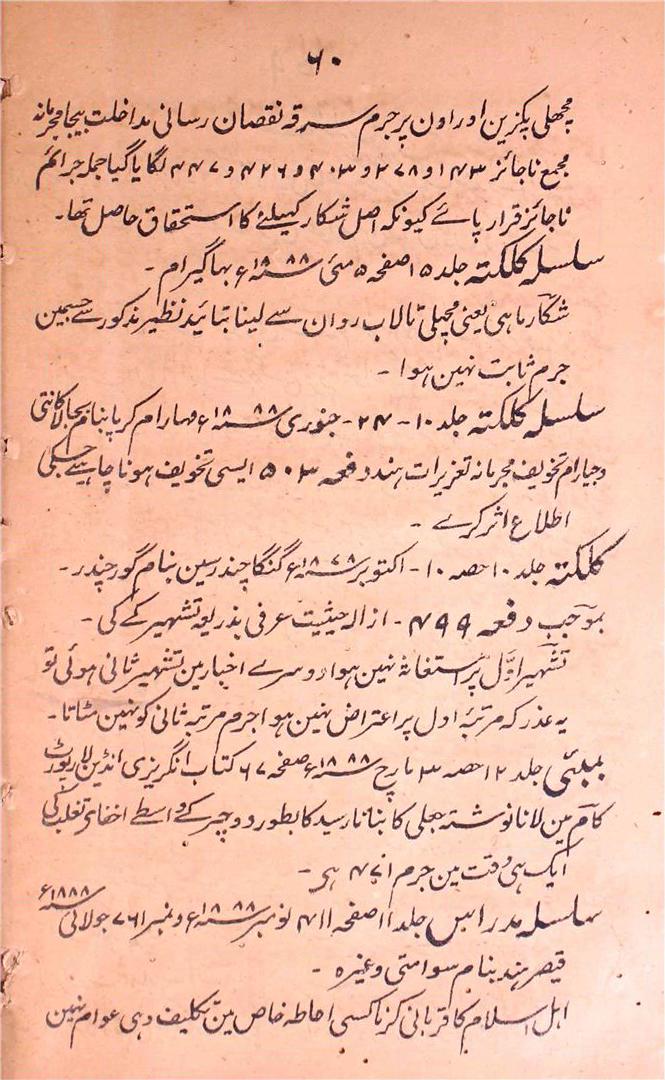 ۶۰
مچھلی پکڑین اور اون پر جرم سرقہ نقصان رسانی مداخلت بیجا مجرمانہ
مجمع ناجائز ۱۴۳ و ۲۷۸ و ۴۰۳ و ۴۲۶ و ۴۴۷ لگایا گیا جملہ جرائم
ناجائز قرار پائے کیونکہ اصل شکار کھیلنے کا استحقاق حاصل تھا۔
سلسلہ کلکتہ جلد ۱۵ صفحہ ۵ مئی ۱۸۸۸ء بھاگیرام ۔
شکار ماہی یعنی مچھلی تالاب روان سے لینا بتائید نظیر مذکور سے جسمین
جرم ثابت نہین ہوا ۔
سلسلہ کلکتہ جلد ۱۰ - ۲۴ - جنوری ۱۸۸۸ء مہارام کرپا بنام
وجیارام تخویف مجرمانہ تعزیرات ہند دفعہ ۵۰۳ ایسی تخویف ہونا چاہیے جسکی
اطلاع اثر کرے ۔
کلکتہ جلد ۱۰ حصہ ۱۰ - اکتوبر ۱۸۷۸ء گنگا چندر سین بنام گور چندر ۔
بموجب دفعہ ۴۹۹ - ازالہ حیثیت عرفی بذریعہ تشہیر کے کی ۔
تشہیر اوّل پر استغاثہ نہین ہوا دوسرے اخبار مین تشہیر ثانی ہوئی تو
یہ عذر کہ مرتبۂ اول پر اعتراض نہین ہوا جرم مرتبہ ثانی کو نہین مٹاتا ۔
بمبئی جلد ۱۲ حصہ ۳ مارچ ۱۸۸۸ء صفحہ ۶۷ کتاب انگریزی انڈین لا رپورٹ
کام مین لانا نوشتہ جعلی کا بنانا رسید کا بطور ووچر کے واسطے اخفای تغلب کی
ایک ہی وقت مین جرم ۴۷۱ ہی ۔
سلسلہ مدراس جلد ۱۱ صفحہ ۴۱۱ نومبر ۱۸۸۸ء و نمبر ۷۶۱ جولائی ۱۸۸۸ء
قیصر ہند بنام سوامتی وغیرہ ۔
اہل اسلام کا قربانی کرنا کسی احاطہ خاص مین تکلیف دہی عوام نہین